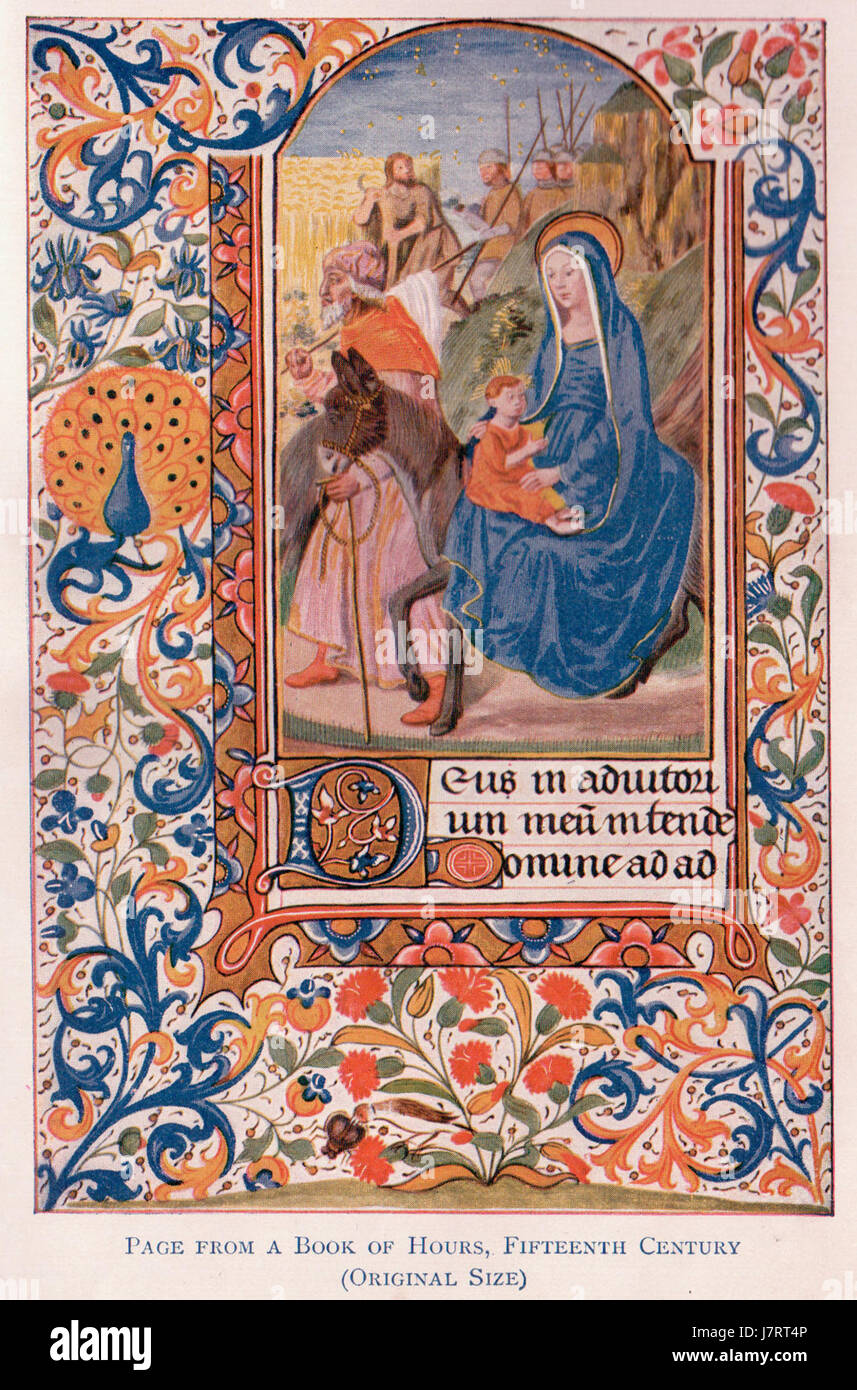 Deus in adiutori
um meū intende
Domine ad ad
PAGE FROM A BOOK OF HOURS, FIFTEENTH CENTURY
(ORIGINAL SIZE)
alamy
Image ID: J7RT4P
www.alamy.com